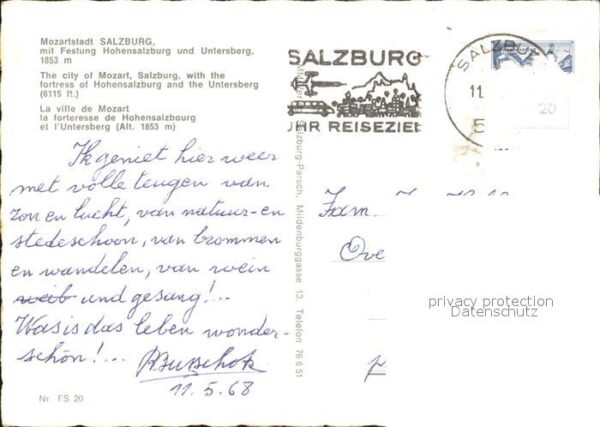 Mozartstadt SALZBURG,
mit Festung Hohensalzburg und Untersberg,
1853 m
The city of Mozart, Salzburg, with the
fortress of Hohensalzburg and the Untersberg
(6115 ft.)
La ville de Mozart
la forteresse de Hohensalzbourg
et l'Untersberg (Alt. 1853 m)
SALZBURG
IHR REISEZIEL
SALZBUR
11.
5
20
Ik geniet hier weer
met volle teugen van
zon en lucht, van natuur-en
stedeschoon, van brommen
en wandelen, van wein
weib und gesang!...
Was is das leben wonder-
schön!...
11.5.68
Nr. FS 20
Salzburg-Parsch, Mildenburggasse 13, Telefon 76 6 51
Fam.
Ove
privacy protection
Datenschutz